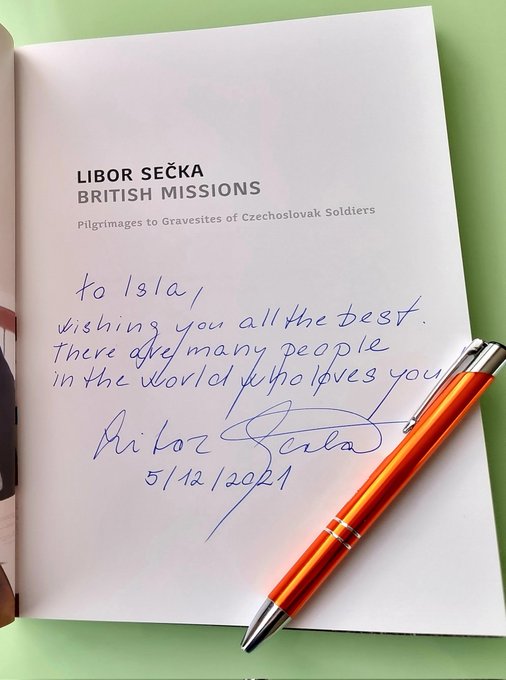 LIBOR SEČKA
BRITISH MISSIONS
Pilgrimages to Gravesites of Czechoslovak Soldiers
to Isla,
wishing you all the best.
There are many people
in the world who loves you
Libor Sečka
5/12/2021